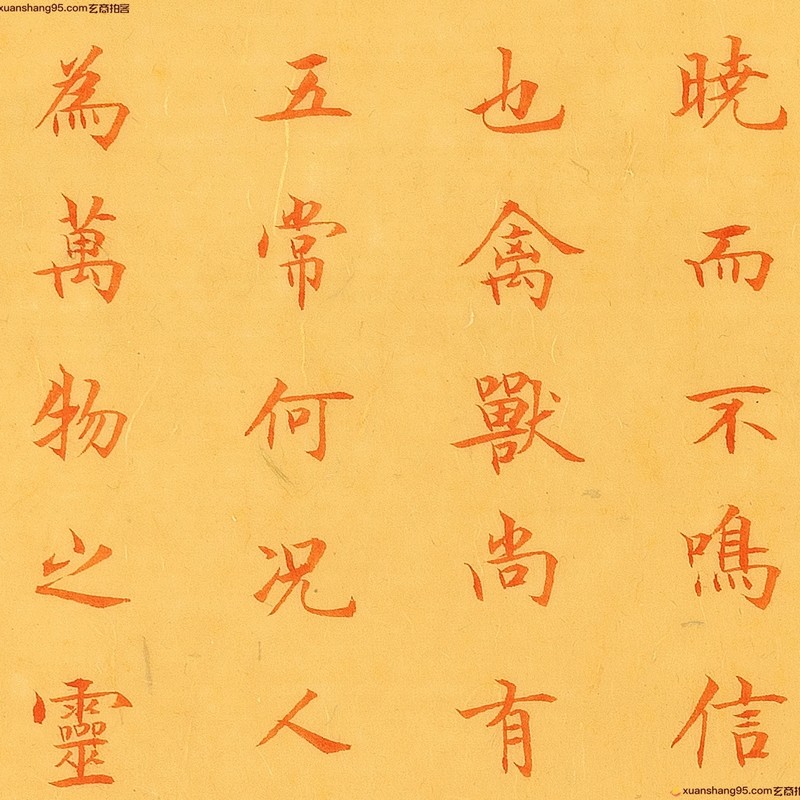 xuanshang95.com玄商拍客
曉而不鳴信
也禽獸尚有
五常何况人
為萬物之靈
xuanshang95.com玄商拍